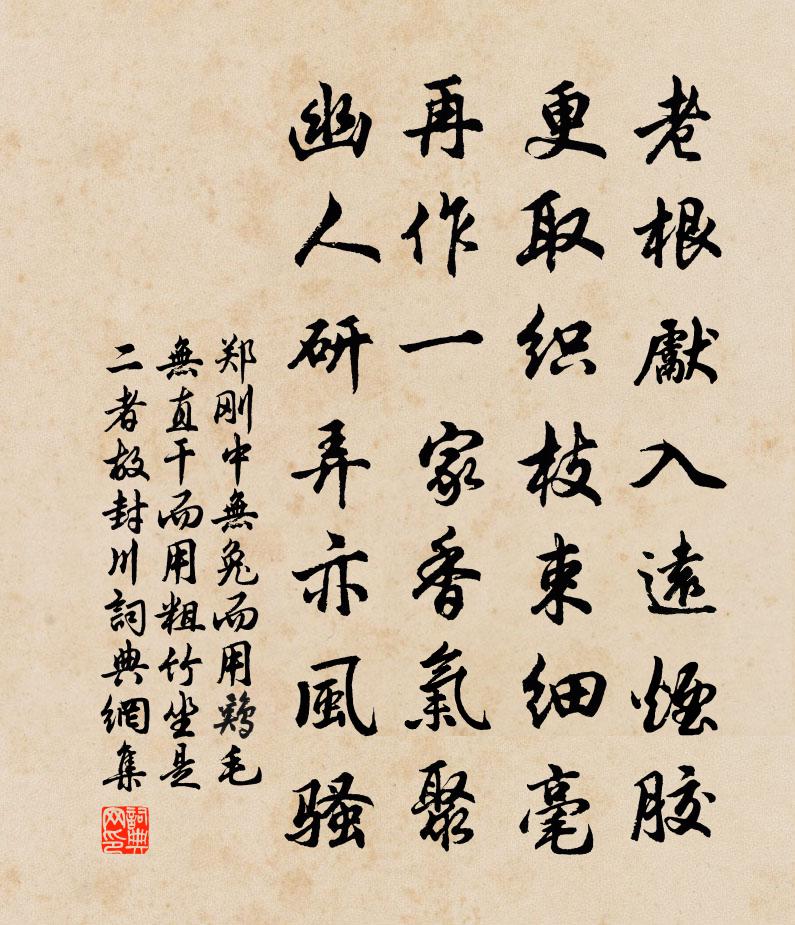 老根獻入遠煙胶
更取织枝束细毫
再作一家香氣聚
幽人研弄亦風骚
郑刚中無兔而用鷄毛
無直干而用粗竹坐是
二者故封川詞典網集
詞典网印